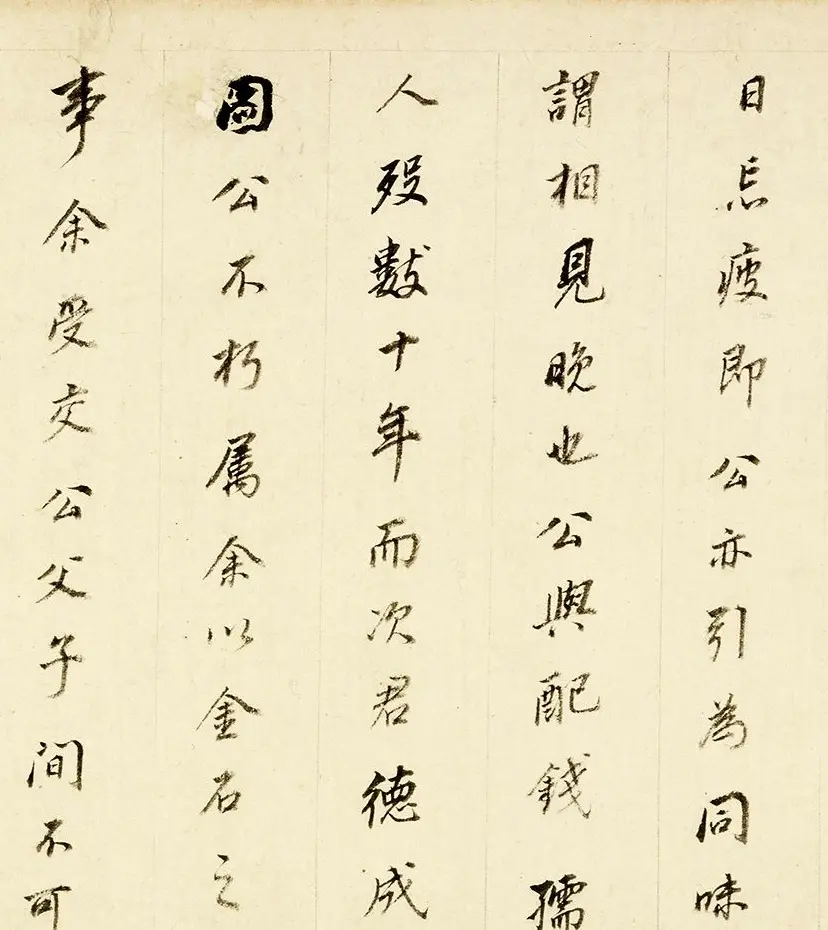 日忘疲即公亦引為同味
謂相見晚也公與配錢孺
人歿數十年而次君德成
圖公不朽屬余以金石之
事余受交公父子間不可